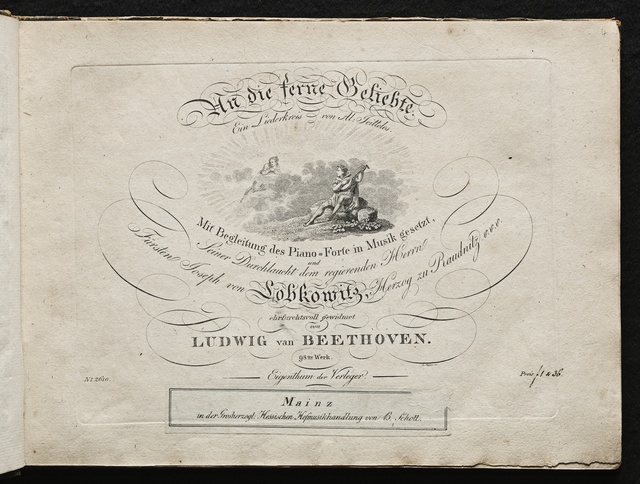 An die ferne Geliebte.
Ein Liederkreis von Al. Jeitteles.
Mit Begleitung des Piano=Forte in Musik gesetzt,
und
Seiner Durchlaucht dem regierenden Herrn
Fürsten Joseph von Lobkowitz, Herzog zu Raudnitz &c. &c. &c.
ehrfurchtsvoll gewidmet
von
LUDWIG van BEETHOVEN.
98tes Werk.
Eigenthum der Verleger.
No. 2610.
Preis f 1 x 36.
Mainz
in der Grosherzogl: Hessischen Hofmusikhandlung von B. Schott.